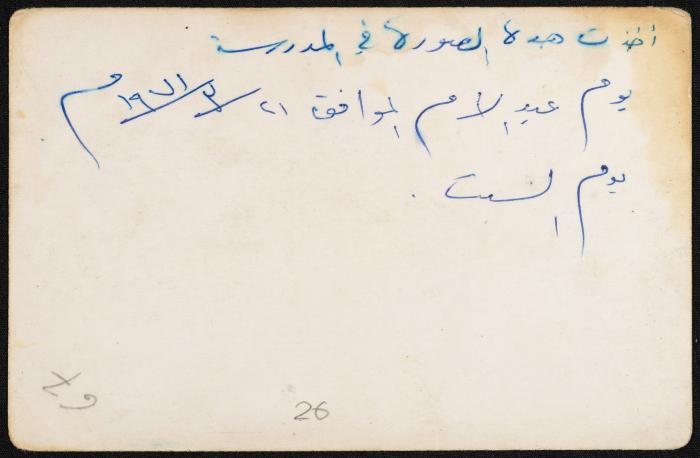 أخذت هذه الصورة في المدرسة
يوم عيد الام الموافق ٢١/٣/١٩٧١م
يوم السبت .
26